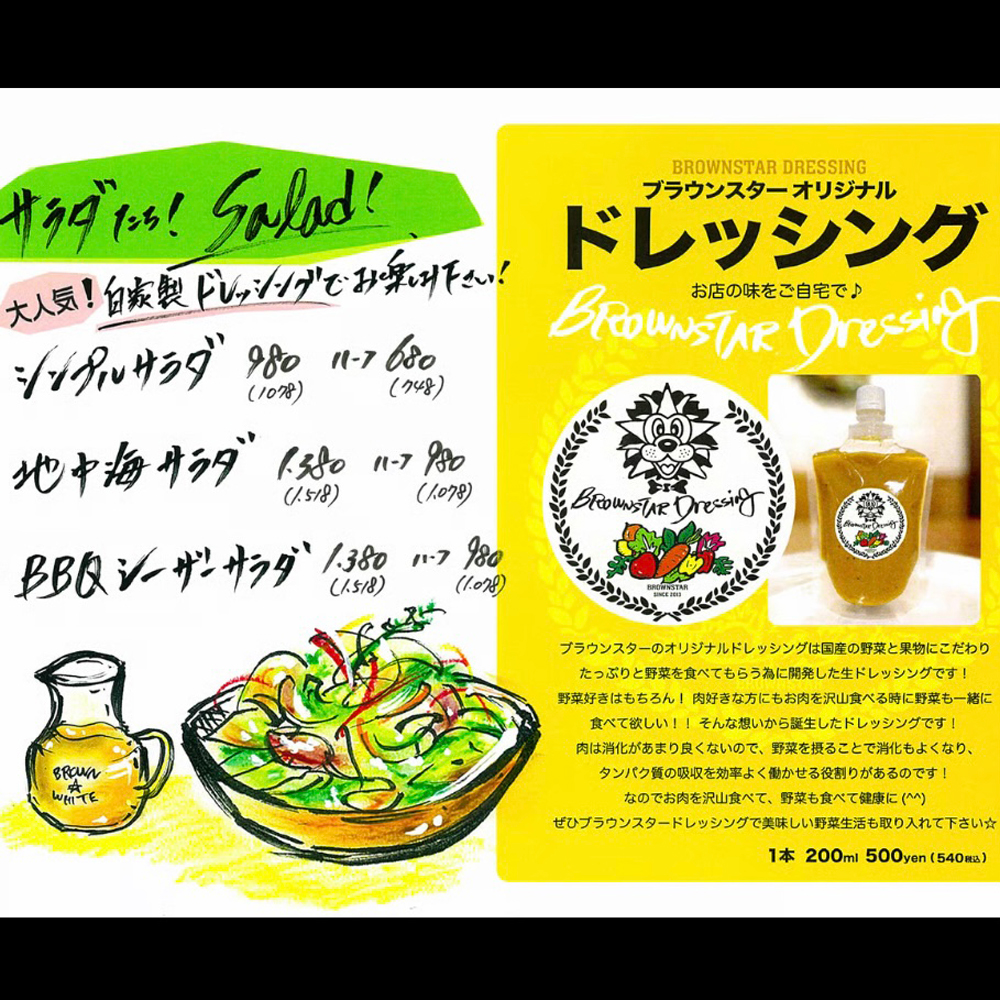 サラダたち! Salad!
大人気! 自家製ドレッシングでお楽しみ下さい!
シンプルサラダ 980 ハーフ 680
(1078) (748)
地中海サラダ 1.380 ハーフ 980
(1.518) (1.078)
BBQシーザーサラダ 1.380 ハーフ 980
(1.518) (1.078)
BROWN
WHITE
BROWNSTAR DRESSING
ブラウンスター オリジナル
ドレッシング
お店の味をご自宅で♪
BROWNSTAR Dressing
BROWNSTAR Dressing
BROWNSTAR
SINCE 2013
BROWNSTAR Dressing
ブラウンスターのオリジナルドレッシングは国産の野菜と果物にこだわり
たっぷりと野菜を食べてもらう為に開発した生ドレッシングです!
野菜好きはもちろん! 肉好きな方にもお肉を沢山食べる時に野菜も一緒に
食べて欲しい!! そんな想いから誕生したドレッシングです!
肉は消化があまり良くないので、野菜を摂ることで消化もよくなり、
タンパク質の吸収を効率よく働かせる役割りがあるのです!
なのでお肉を沢山食べて、野菜も食べて健康に(^^)
ぜひブラウンスタードレッシングで美味しい野菜生活も取り入れて下さい☆
1本 200ml 500yen(540税込)